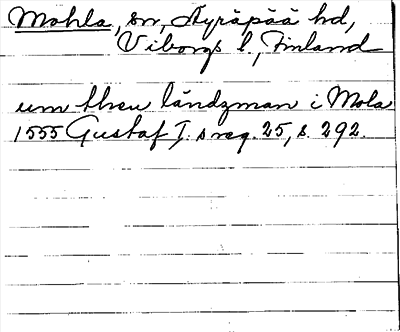 Mohla, sn, Äyräpää hd,
Viborgs l., Finland
um then ländzman i Mola
1555 Gustaf I:s reg. 25, s. 292.